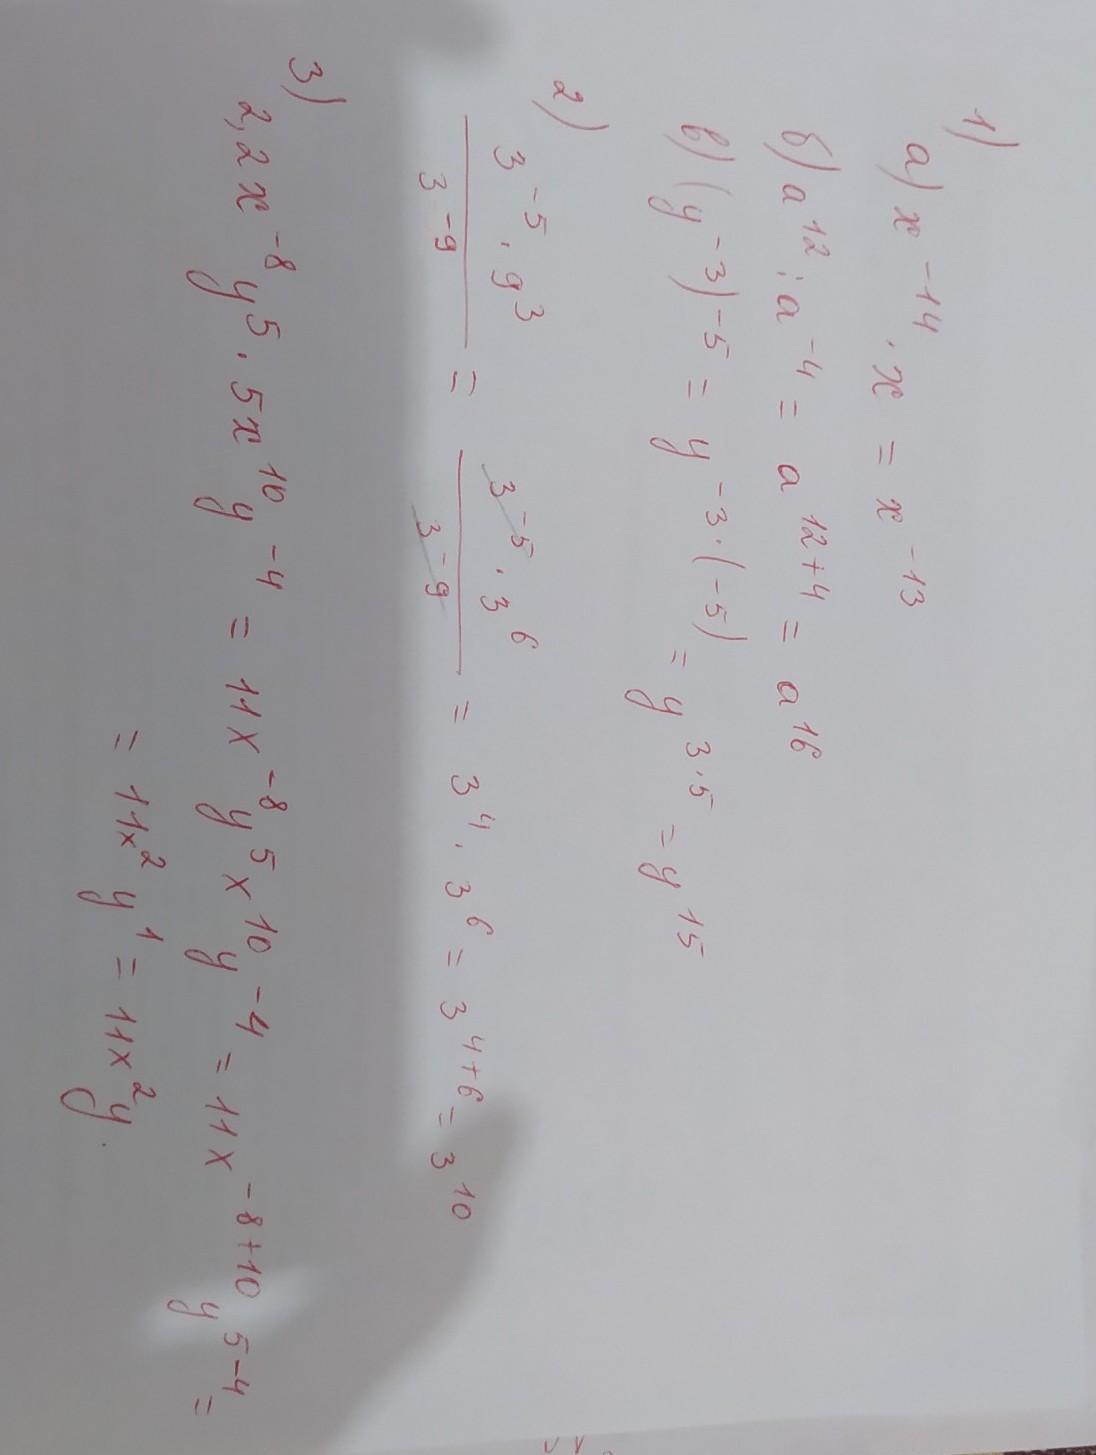 1)
а) x^-14 · x = x^-13
б) a^12 : a^-4 = a^12+4 = a^16
в) (y^-3)^-5 = y^-3·(-5) = y^3·5 = y^15
2)
3^-5 · 9^3 / 3^-9 = 3^-5 · 3^6 / 3^-9 = 3^4 · 3^6 = 3^4+6 = 3^10
3)
2,2x^-8 y^5 · 5x^10 y^-4 = 11x^-8 y^5 x^10 y^-4 = 11x^-8+10 y^5-4 =
= 11x^2 y^1 = 11x^2 y.